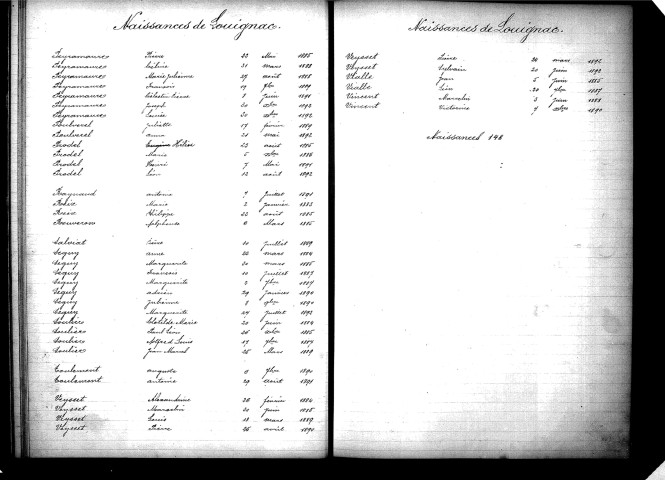 Naissances de Louignac.
Peyramaure Pierre 22 Mai 1885
Peyramaure 21 mars 1888
Peyramaure Marie Julienne 29 août 1888
Peyramaure François 19 1889
Peyramaure 8 Juin 1891
Peyramaure Joseph 20 1892
Peyramaure Louise 20 1892
Poulverel Juliette 17 février 1889
Poulverel anna 21 mai 1892
Prodel Hélise 23 août 1885
Prodel Marie 5 1886
Prodel Henri 7 Mai 1891
Prodel Léon 12 août 1892
Raynaud antoine Juillet 1891
Marie 2 Janvier 1883
Philippe 22 août 1885
Rouveron Alphonse Mars 1885
Salviat 10 Juillet 1889
Séguy anne 22 mars 1884
Séguy Marguerite 20 mars 1885
Séguy François 10 Juillet 1887
Séguy Marguerite 2 1889
Séguy adrien 29 Janvier 1890
Séguy Julienne 8 1890
Séguy Marguerite 24 Juillet 1892
Soulier Clotilde Marie 20 Juin 1884
Soulier Paul Léon 26 1885
Soulier Alfred Louis 17 1887
Soulier Jean Marcel 26 Mars 1889
Toulemont auguste 1890
Toulemont antoine 29 août 1891
Veysset Alexandrine 26 février 1884
Veysset Marcelin 20 Juin 1885
Veysset Louis 18 mars 1889
Veysset Pierre 26 août 1890
Naissances de Louignac.
Veysset mars 1892
Veysset Sylvain 20 Juin 1892
Vialle Jean 5 Juin 1885
Vialle 20 1887
Vincent Marcelin 3 Juin 1888
Vincent Victorine 9 1890
Naissances 146